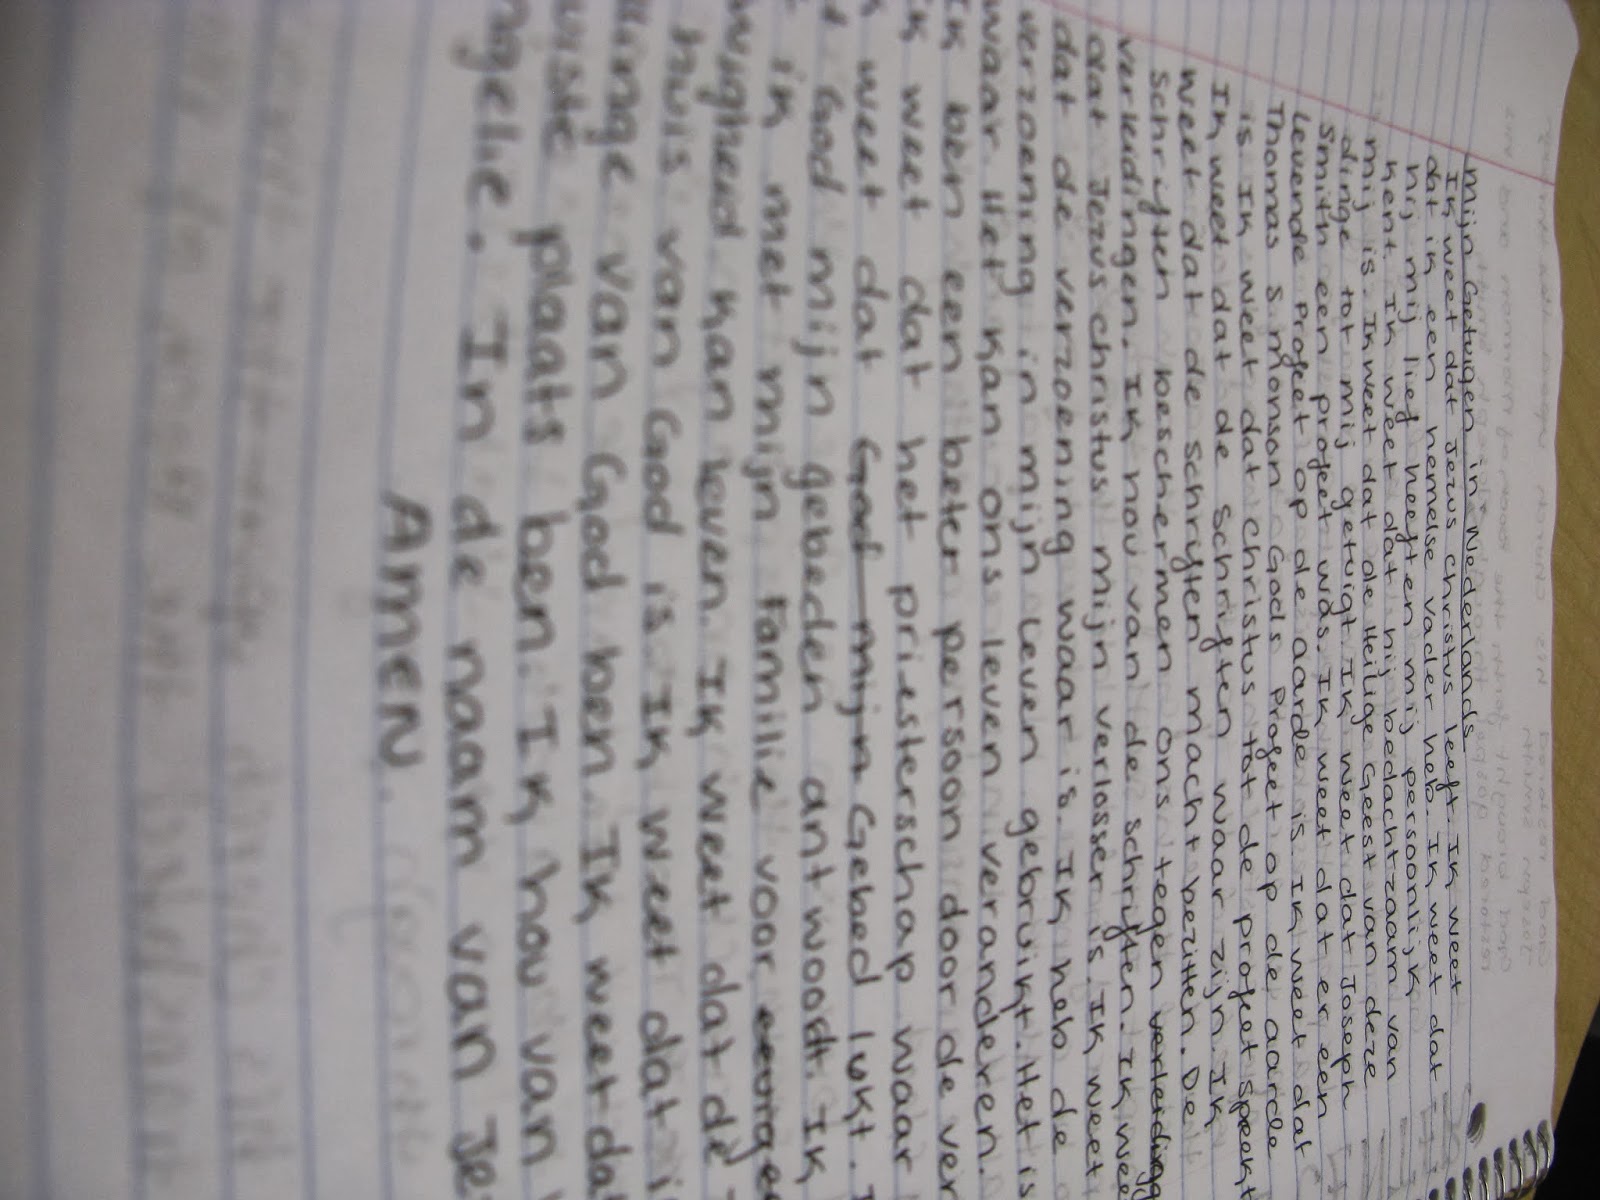 Mijn Getuigen in Nederlands
Ik weet dat Jezus christus leeft. Ik weet
dat ik een hemelse vader heb. Ik weet dat
hij mij lief heeft en mij persoonlijk
kent. Ik weet dat hij bedachtzaam van
mij is. Ik weet dat de Heilige Geest van deze
dinge tot mij getuigt. Ik weet dat Joseph
Smith een profeet was. Ik weet dat er een
levende Profeet op de aarde is. Ik weet dat
Thomas S monson Gods Profeet op de aarde
is. Ik weet dat christus tot de profeet speekt
Ik weet dat de schriften waar zijn. Ik
weet dat de schriften macht bezitten. De
schriften beschermen ons tegen
verleidingen. Ik hou van de schriften. Ik wee
dat Jezus christus mijn verlosser is. Ik weet
dat de verzoening waar is. Ik heb de
verzoening in mijn leven gebruikt. Het is
waar. Het kan ons leven veranderen.
Ik ben een beter persoon door de ver
ik weet dat het priesterschap waar
weet dat God mijn Gebed lukt. I
God mijn gebeden antwoordt. Ik
ik met mijn Familie voor
wigheid kan leven. Ik weet dat de
huis van God is. Ik weet dat i
linge van God ben. Ik weet da
uiste plaats ben. Ik hou van
ngelie. In de naam van Je
Amen